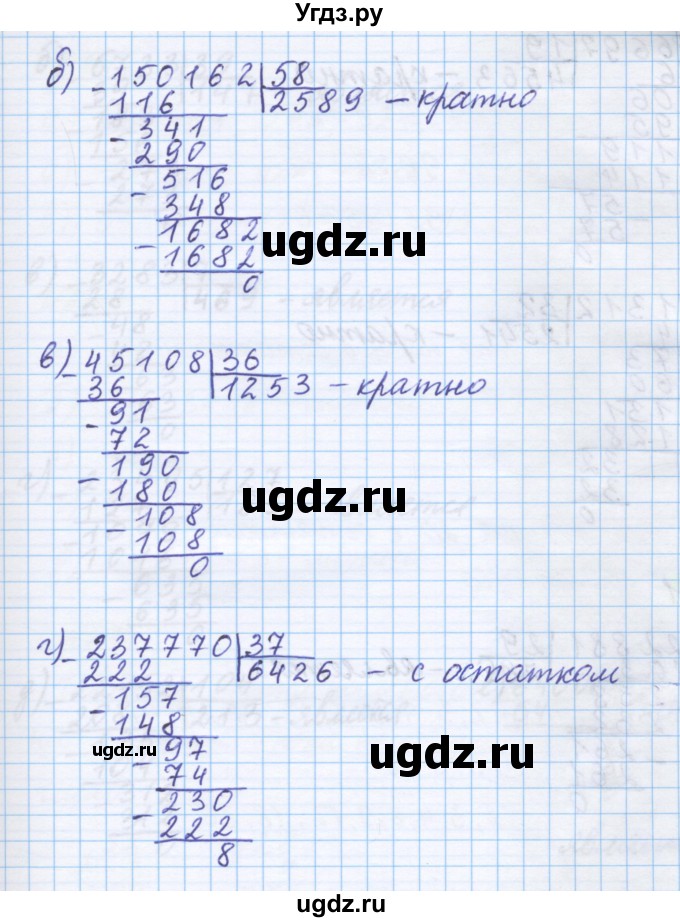 Угдз.ру
б) - 150162 | 58
116 2589 - кратно
- 341
290
- 516
348
- 1682
ugdz.ru
1682
0
в) - 45108 | 36
36 1253 - кратно
- 91
72
- 190
180
ugdz.ru
- 108
108
0
г) - 237770 | 37
222 6426 - с остатком
- 157
148
ugdz.ru
- 97
ugdz.ru
74
- 230
222
8
ugdz.ru